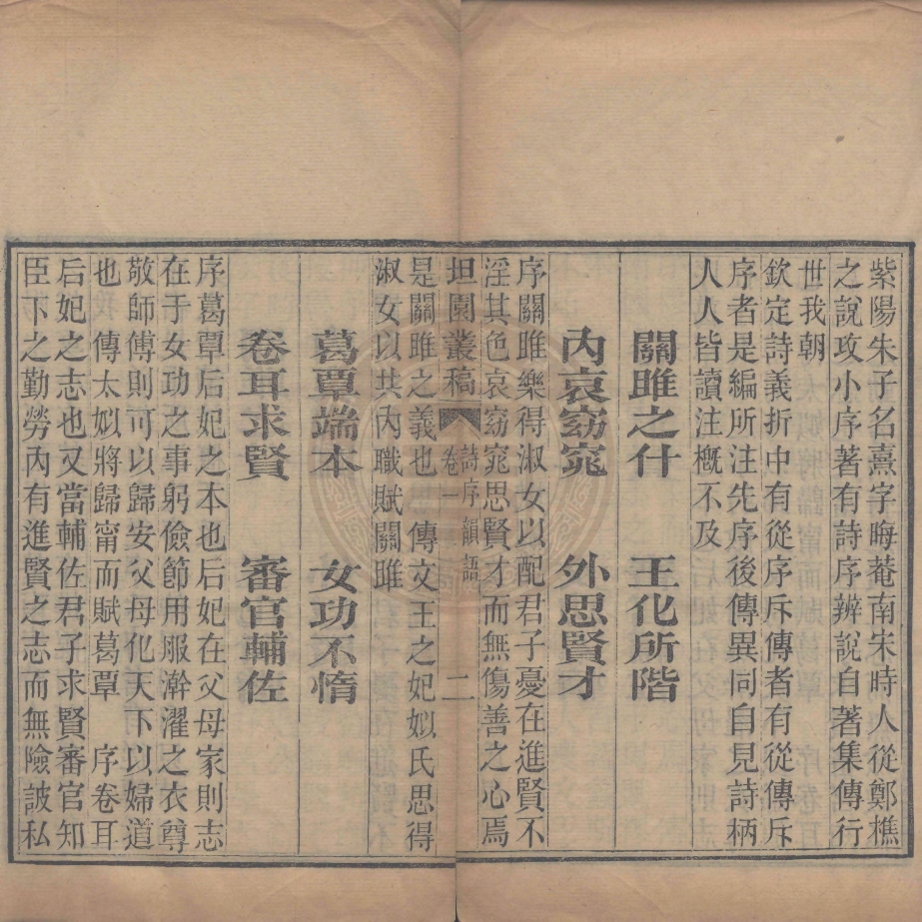 紫陽朱子名熹字晦菴南宋時人從鄭樵
之說攻小序著有詩序辨說自著集傳行
世我朝
欽定詩義折中有從序斥傳者有從傳斥
序者是編所注先序後傳異同自見詩柄
人人皆讀注槪不及
關雎之什 王化所階
內哀窈窕 外思賢才
序關雎樂得淑女以配君子憂在進賢不
淫其色哀窈窕思賢才而無傷善之心焉
坦園叢稿 詩序韻語 卷一 二
是關雎之義也 傳文王之妃姒氏思得
淑女以共內職賦關雎
葛覃端本 女功不惰
卷耳求賢 審官輔佐
序葛覃后妃之本也后妃在父母家則志
在于女功之事躬儉節用服澣濯之衣尊
敬師傅則可以歸安父母化天下以婦道
也 傳太姒將歸甯而賦葛覃 序卷耳
后妃之志也又當輔佐君子求賢審官知
臣下之勤勞內有進賢之志而無險詖私